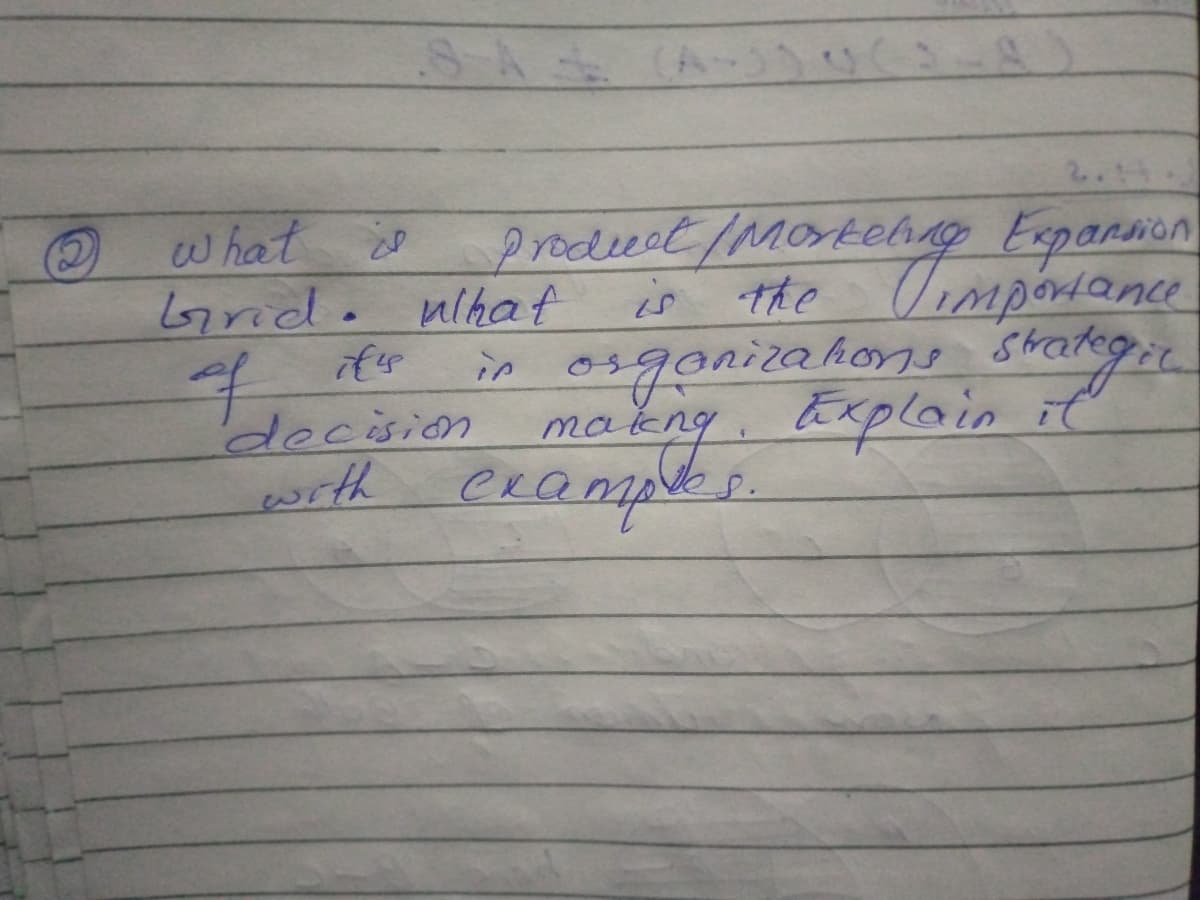 ② What is product/Marketing Expansion
Grid. What is the importance
of it's in organizations strategic
decision making. Explain it
with examples.